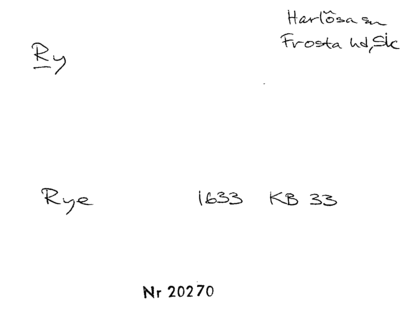 Harlösa sn
Frosta hd, Sk
Ry
Rye 1633 KB 33
Nr 20270